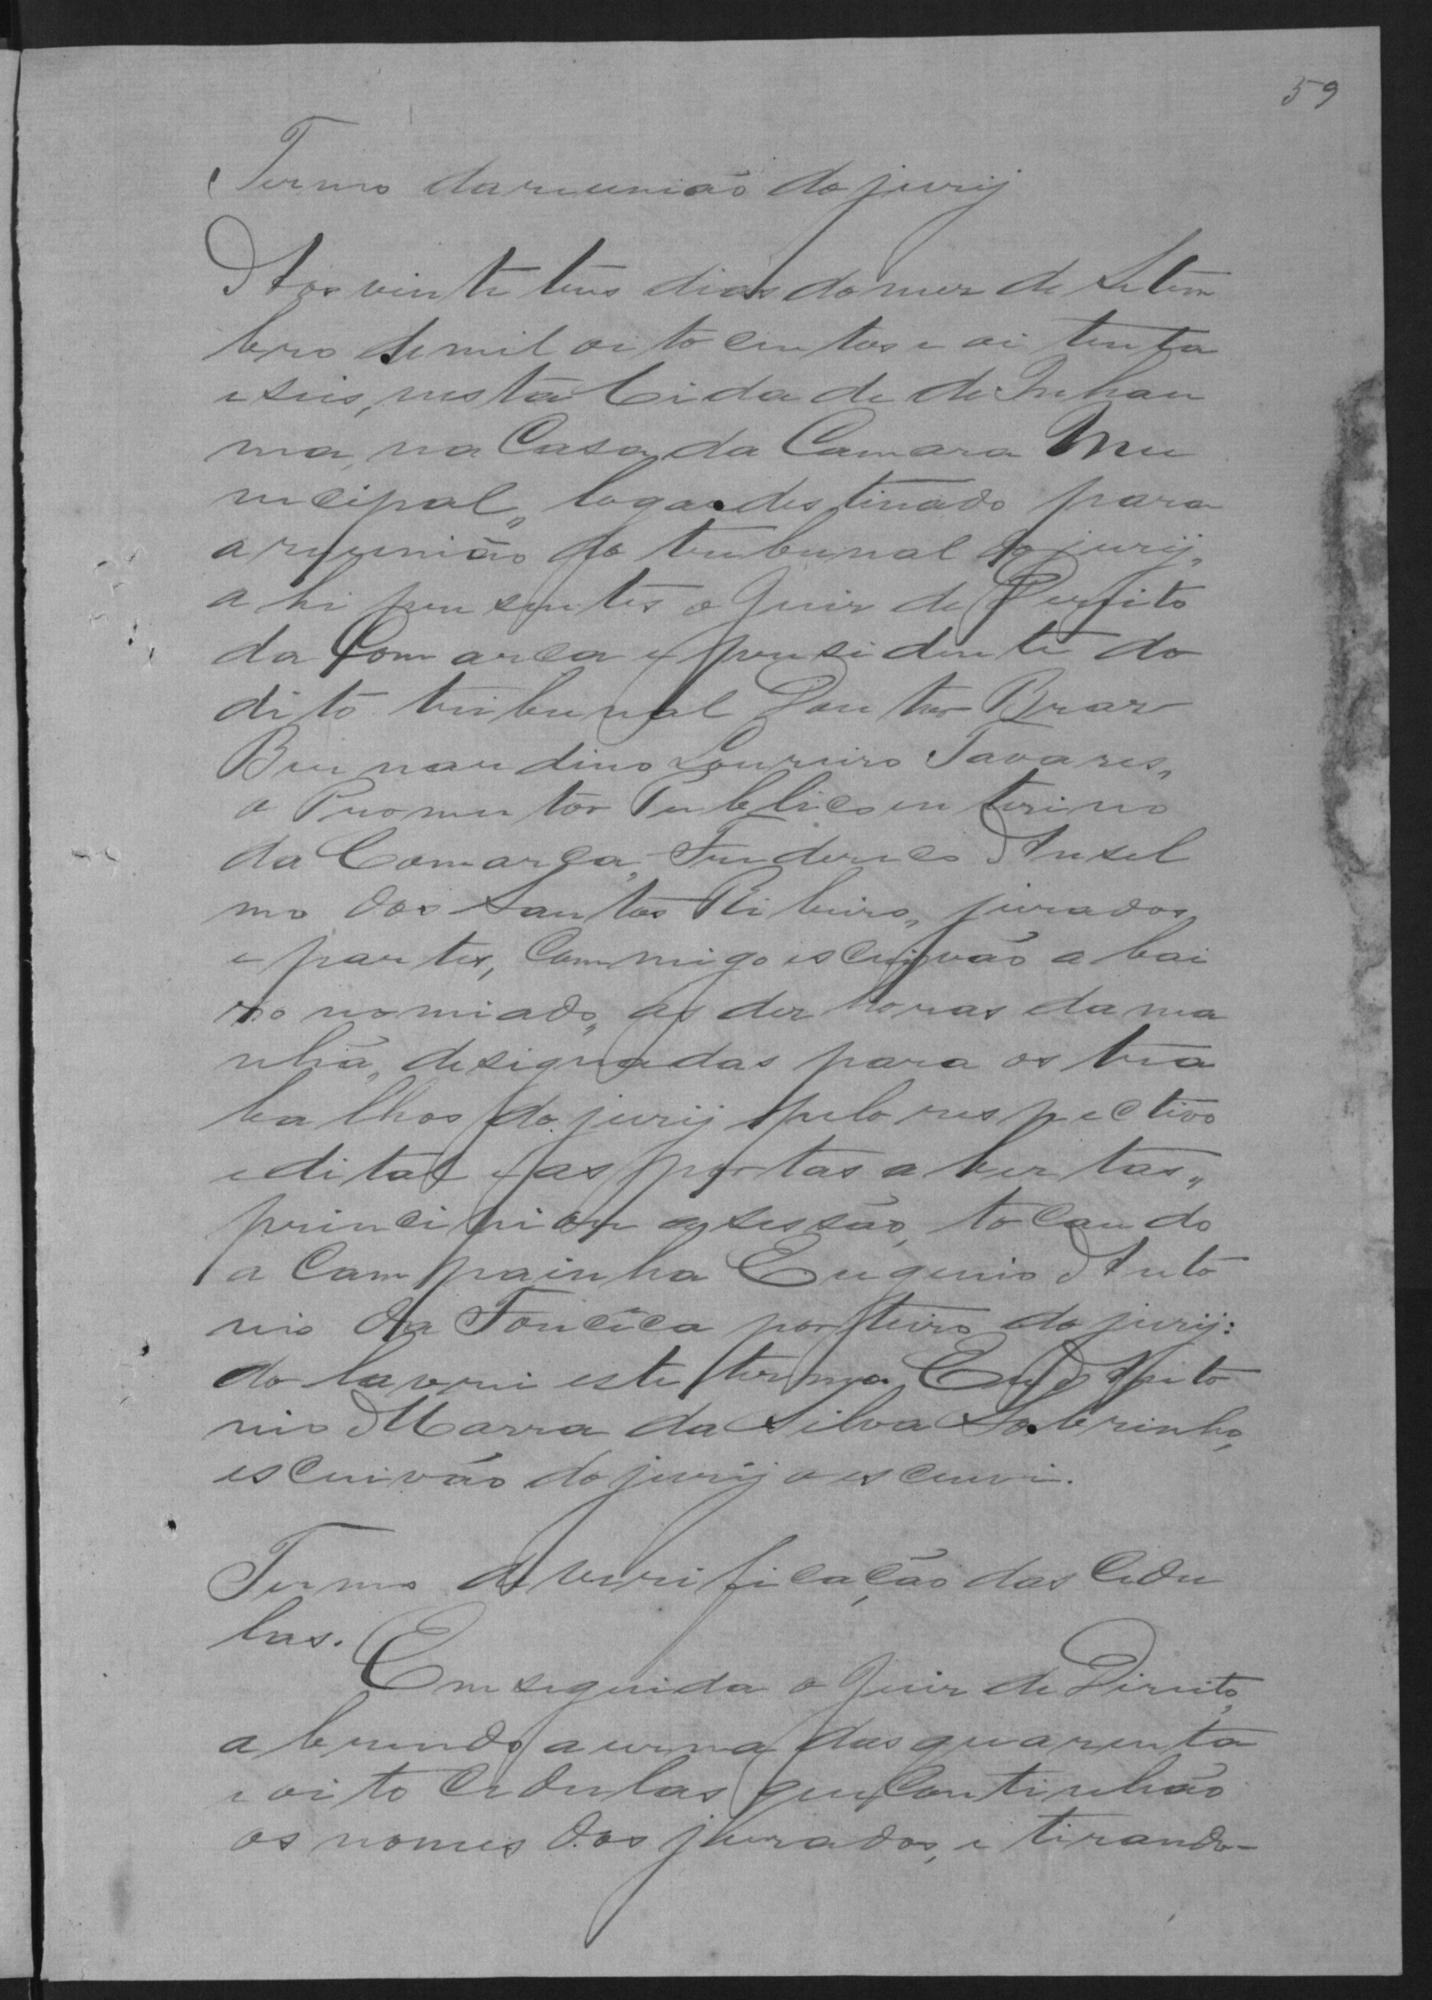 59
Termo da reunião do jury
Aos vinte tres dias do mez de Setem
bro de mil oito centos e oi tenta
e seis, nesta Cidade de Inhau
ma, na Casa da Camara Mu
nicipal, logar destinado para
a reunião do tribunal do jury,
a hi presentes o Juiz de Direito
da Comarca e presidente do
dito tribunal Doutor Braz
Bernardino Loureiro Tavares,
o Promotor Publico enterino
da Comarca, Frederico Ansel
mo dos Santos Ribeiro, jurados
e partes, commigo escrivão a bai
xo nomiado, as dez horas da ma
nhã, designadas para os tra
balhos do jury pelo respectivo
edital e as portas a bertas,
principiou a sessão, tocando
a Campainha Eugenio Anto
nio da Fonceca porteiro do jury:
do lavrei este termo. Eu Anto
nio Marra da Silva Sobrinho,
escrivão do jury o escrevi.
Termo de verificação das cedu
las.
Em seguida o Juiz de Direito,
abrindo a urna das quarenta
e oito cedulas que continhão
os nomes dos jurados, e tirando-